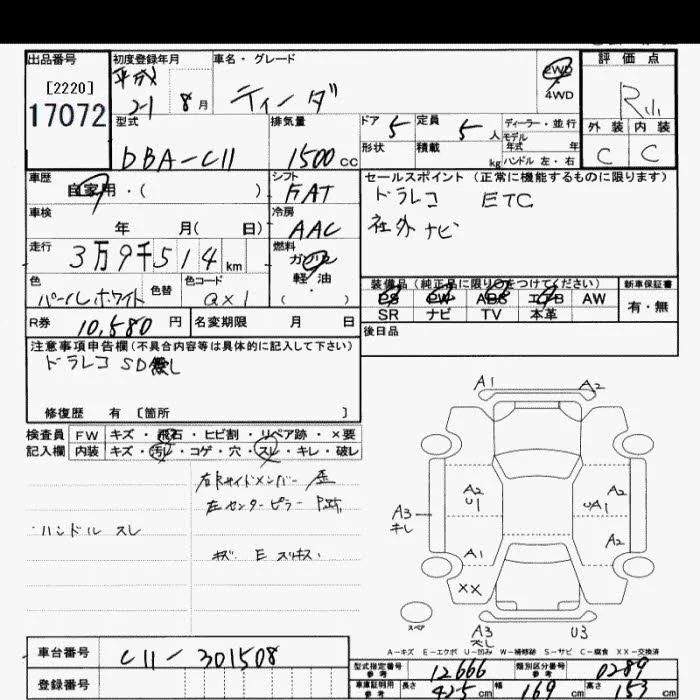 出品番号
[2220]
17072
初度登録年月
平成
21 8月
車名・グレード
ティーダ
2WD
4WD
評価点
R
外装 内装
C C
型式
DBA-C11
排気量
1500cc
ドア 5 定員 5人
ディーラー・並行
モデル
年式 年
形状 積載 kg ハンドル 左・右
車歴
自家用・( )
シフト
FAT
セールスポイント (正常に機能するものに限ります)
ドラレコ ETC
社外 ナビ
車検
年 月( 日)
冷房
AAC
走行
3万9千514km
燃料
ガソリン
軽・油
( )
色
パールホワイト
色替
色コード
QX1
装備品(純正品に限り○をつけてください)
新車保証書
PS PW ABS エアB AW
SR ナビ TV 本革
有・無
R券 10,580円
名変期限 月 日
後日品
注意事項申告欄(不具合内容等は具体的に記入して下さい)
ドラレコ SD無し
修復歴 有 [箇所 ]
検査員
記入欄
FW キズ・飛石・ヒビ割・リペア跡・×要
内装 キズ・汚れ・コゲ・穴・スレ・キレ・破レ
右Rサイドメンバー 歪
左センターピラー
ハンドル スレ
A1 A2
A2
U1
A2
UA1
A3
キレ
A1
A2
XX
スペア
A3
U3
A-キズ E-エクボ U-凹み W-補修跡 S-サビ C-腐食 XX-交換済
車台番号
C11-301508
登録番号
型式指定番号
参考
12666
類別区分番号
参考
0289
車庫証明用
参考
長さ 425cm 幅 169cm 高さ 153cm